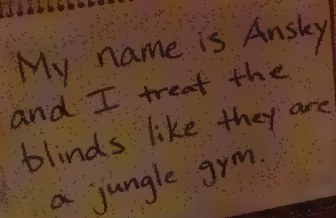 My name is Ansky
and I treat the
blinds like they are
a jungle gym.